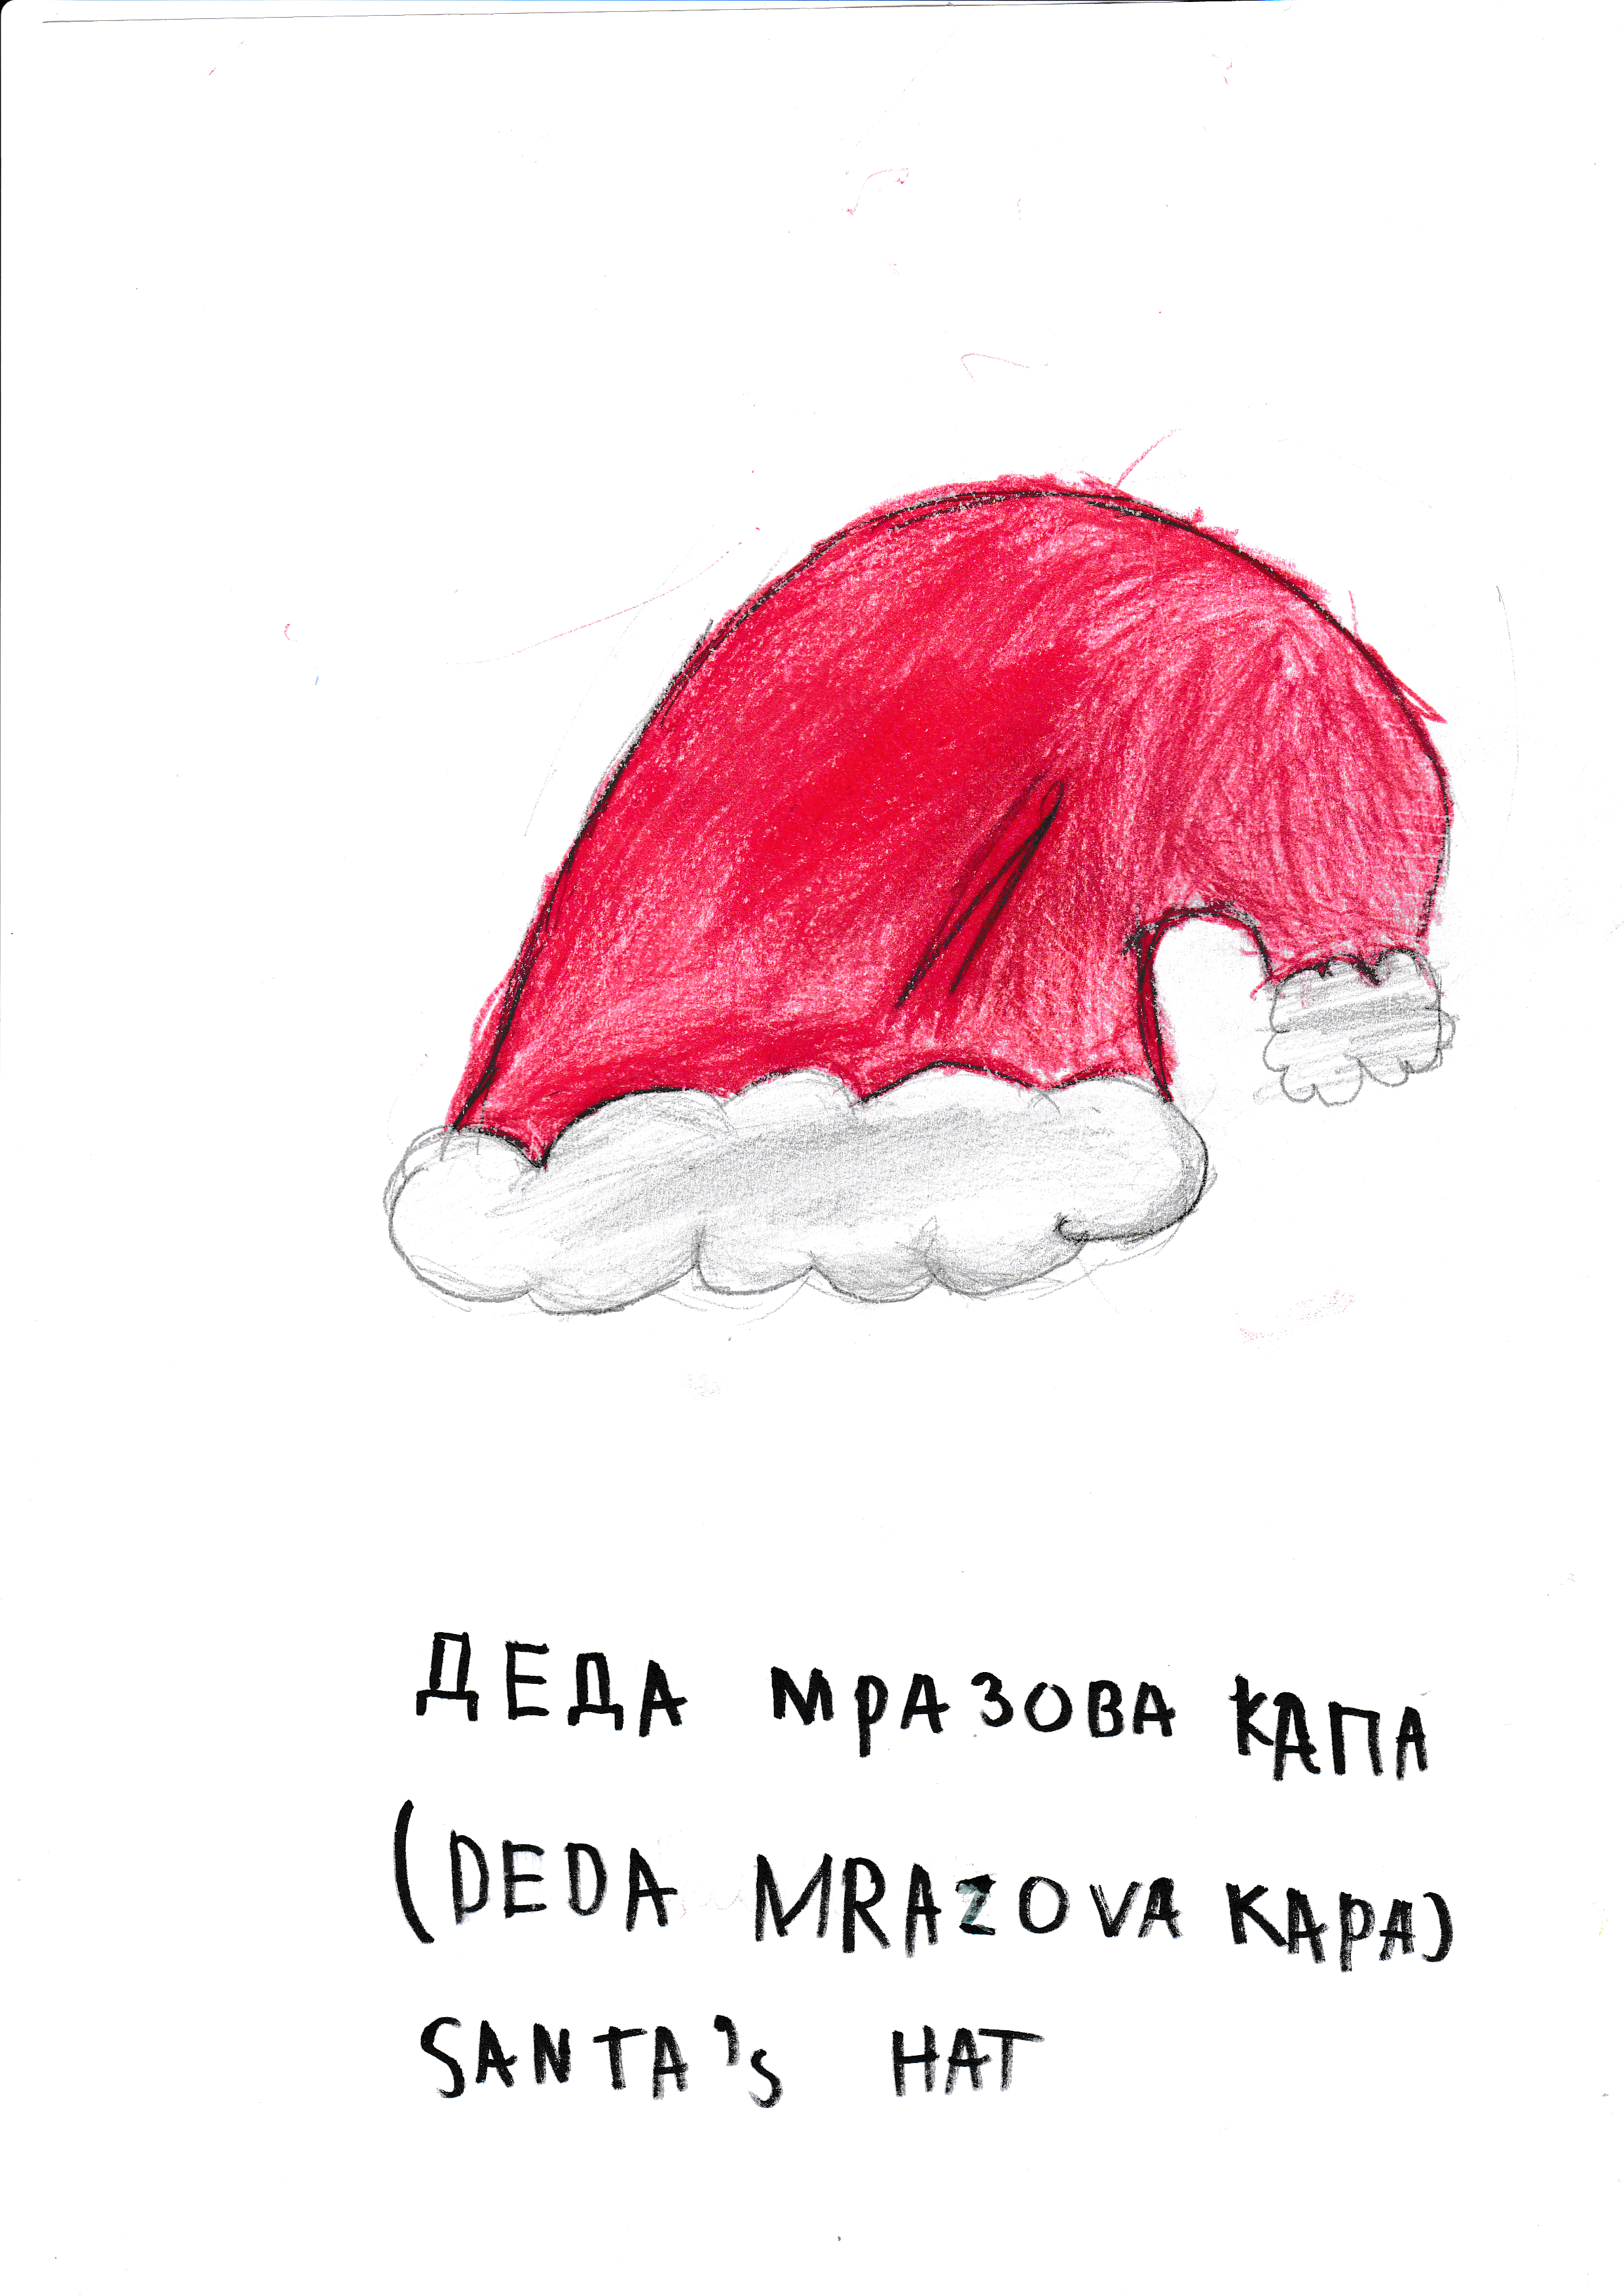 ДЕДА МРАЗОВА КАПА
(DEDA MRAZOVA KAPA)
SANTA's HAT